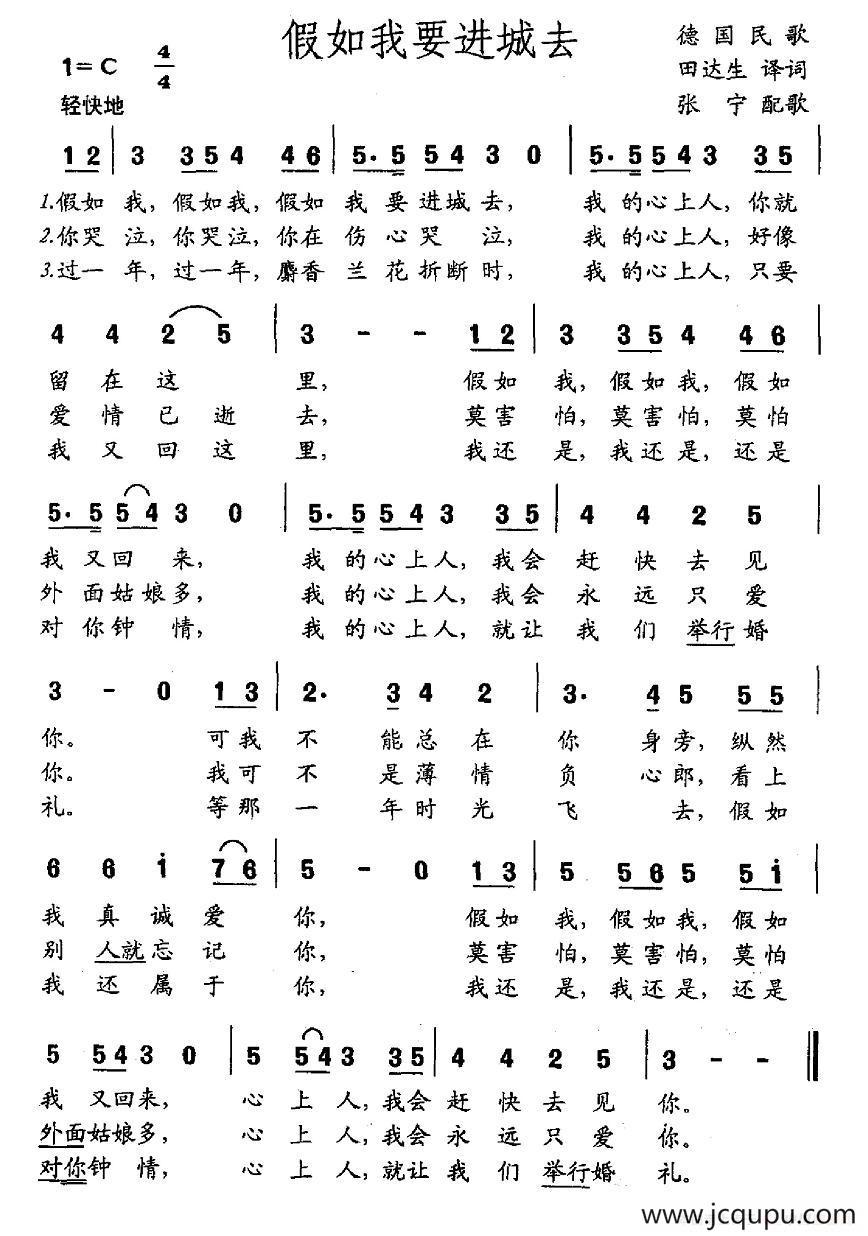 假如我要进城去
德国民歌
1=C 4/4
田达生 译词
轻快地
张宁 配歌
1 2 | 3 3 5 4 4 6 | 5· 5 5 4 3 0 | 5· 5 5 4 3 3 5 |
1.假如 我，假如我，假如 我 要 进城 去， 我 的心上人，你就
2.你哭 泣，你哭泣，你在 伤 心 哭 泣， 我 的心上人，好像
3.过一 年，过一年，麝香 兰 花 折断 时， 我 的心上人，只要
4 4 2 5 | 3 - - 1 2 | 3 3 5 4 4 6 |
留 在 这 里， 假如 我，假如我，假如
爱 情 已 逝 去， 莫害 怕，莫害怕，莫怕
我 又 回 这 里， 我还 是，我还是，还是
5· 5 5 4 3 0 | 5· 5 5 4 3 3 5 | 4 4 2 5 |
我 又回 来， 我 的心上人，我会 赶 快 去 见
外 面姑娘多， 我 的心上人，我会 永 远 只 爱
对 你钟 情， 我 的心上人，就让 我 们 举行 婚
3 - 0 1 3 | 2· 3 4 2 | 3· 4 5 5 5 |
你。 可我 不 能总 在 你 身旁，纵然
你。 我可 不 是薄 情 负 心郎，看上
礼。 等那 一 年时 光 飞 去，假如
6 6 i 7 6 | 5 - 0 1 3 | 5 5 6 5 5 i |
我 真 诚 爱 你， 假如 我，假如我，假如
别 人就 忘 记 你， 莫害 怕，莫害怕，莫怕
我 还 属 于 你， 我还 是，我还是，还是
5 5 4 3 0 | 5 5 4 3 3 5 | 4 4 2 5 | 3 - - ‖
我 又回来， 心 上 人，我会 赶 快 去 见 你。
外面姑娘多， 心 上 人，我会 永 远 只 爱 你。
对你钟 情， 心 上 人，就让 我 们 举行婚 礼。
www.jcqupu.com